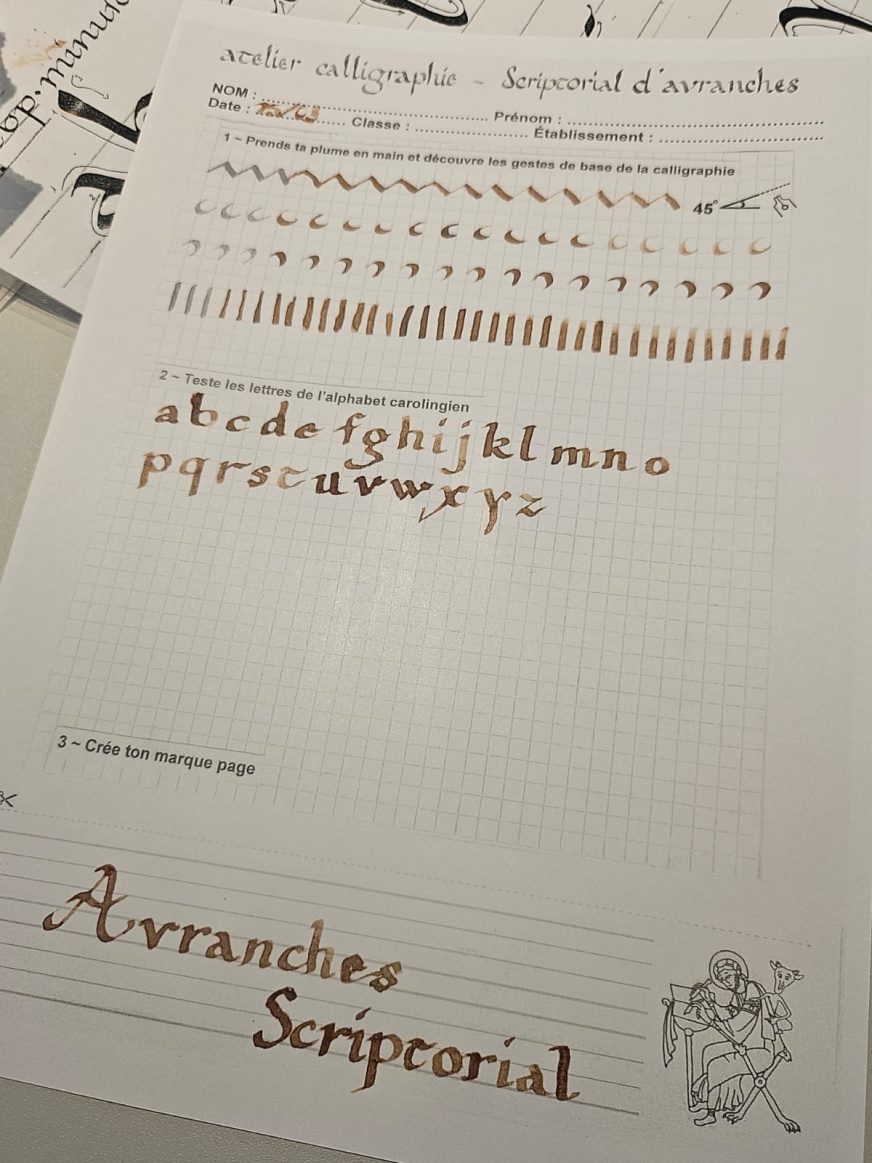 atelier calligraphie - Scriptorial d'avranches
NOM : Prénom :
Date : Classe : Établissement :
1 ~ Prends ta plume en main et découvre les gestes de base de la calligraphie
45°
2 ~ Teste les lettres de l'alphabet carolingien
a b c d e f g h i j k l m n o
p q r s t u v w x y z
3 ~ Crée ton marque page
Avranches
Scriptorial